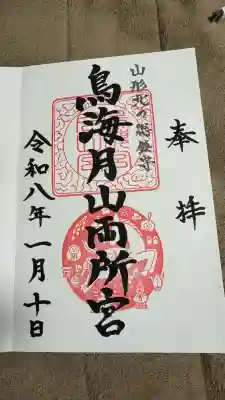 奉拝
山形北の総鎮守
鳥海月山両所宮
令和八年一月十日